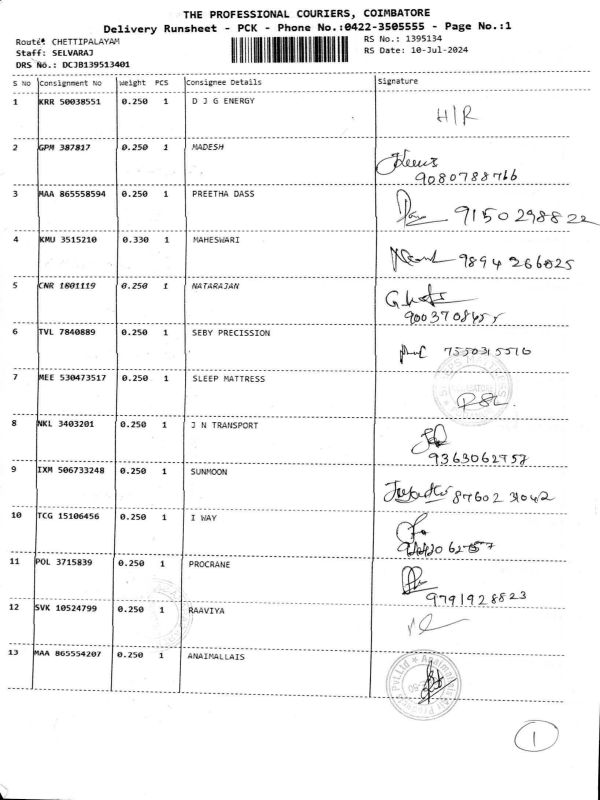 THE PROFESSIONAL COURIERS, COIMBATORE
Delivery Runsheet - PCK - Phone No.:0422-3505555 - Page No.:1
Route: CHETTIPALAYAM
RS No.: 1395134
Staff: SELVARAJ
RS Date: 10-Jul-2024
DRS No.: DCJB139513401
S No Consignment No Weight PCS Consignee Details Signature
1 KRR 50038551 0.250 1 D J G ENERGY H/R
2 GPM 387817 0.250 1 MADESH
9080788766
3 MAA 865558594 0.250 1 PREETHA DASS 9150298822
4 KMU 3515210 0.330 1 MAHESWARI 9894266025
5 CNR 1801119 0.250 1 NATARAJAN
6 TVL 7840889 0.250 1 SEBY PRECISSION 7550315510
7 MEE 530473517 0.250 1 SLEEP MATTRESS
8 NKL 3403201 0.250 1 J N TRANSPORT
9363062757
9 IXM 506733248 0.250 1 SUNMOON 8760231042
10 TCG 15106456 0.250 1 I WAY
11 POL 3715839 0.250 1 PROCRANE
9791928823
12 SVK 10524799 0.250 1 RAAVIYA
13 MAA 865554207 0.250 1 ANAIMALLAIS
1